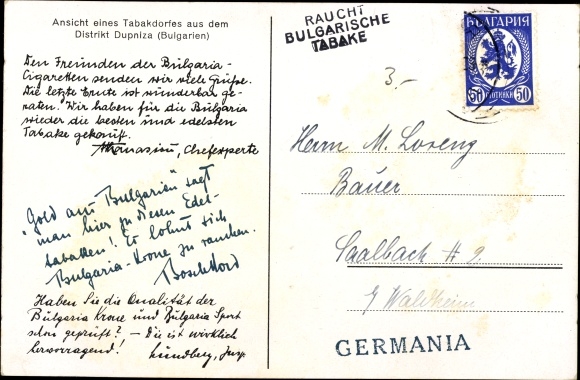 Ansicht eines Tabakdorfes aus dem
Distrikt Dupniza (Bulgarien)
Den Freunden der Bulgaria-
Cigaretten senden wir viele Grüße.
Die letzte Ernte ist wunderbar ge-
raten. Wir haben für die Bulgaria
wieder die besten und edelsten
Tabake gekauft.
Athanasiou, Chefexperte
"Gold aus Bulgarien" sagt
man hier zu diesen Edel-
tabaken! Es lohnt sich
Bulgaria-Krone zu rauchen.
Haben Sie die Qualität der
Bulgaria Krone und Bulgaria Sport
schon geprüft? - Die ist wirklich
hervorragend! Lundberg,
RAUCHT
BULGARISCHE
TABAKE
БЪЛГАРИЯ
50 СТОТИНКИ 50
3.-
Herrn M. Lorenz
Bauer
Saalbach # 9.
b/ Waldheim
GERMANIA